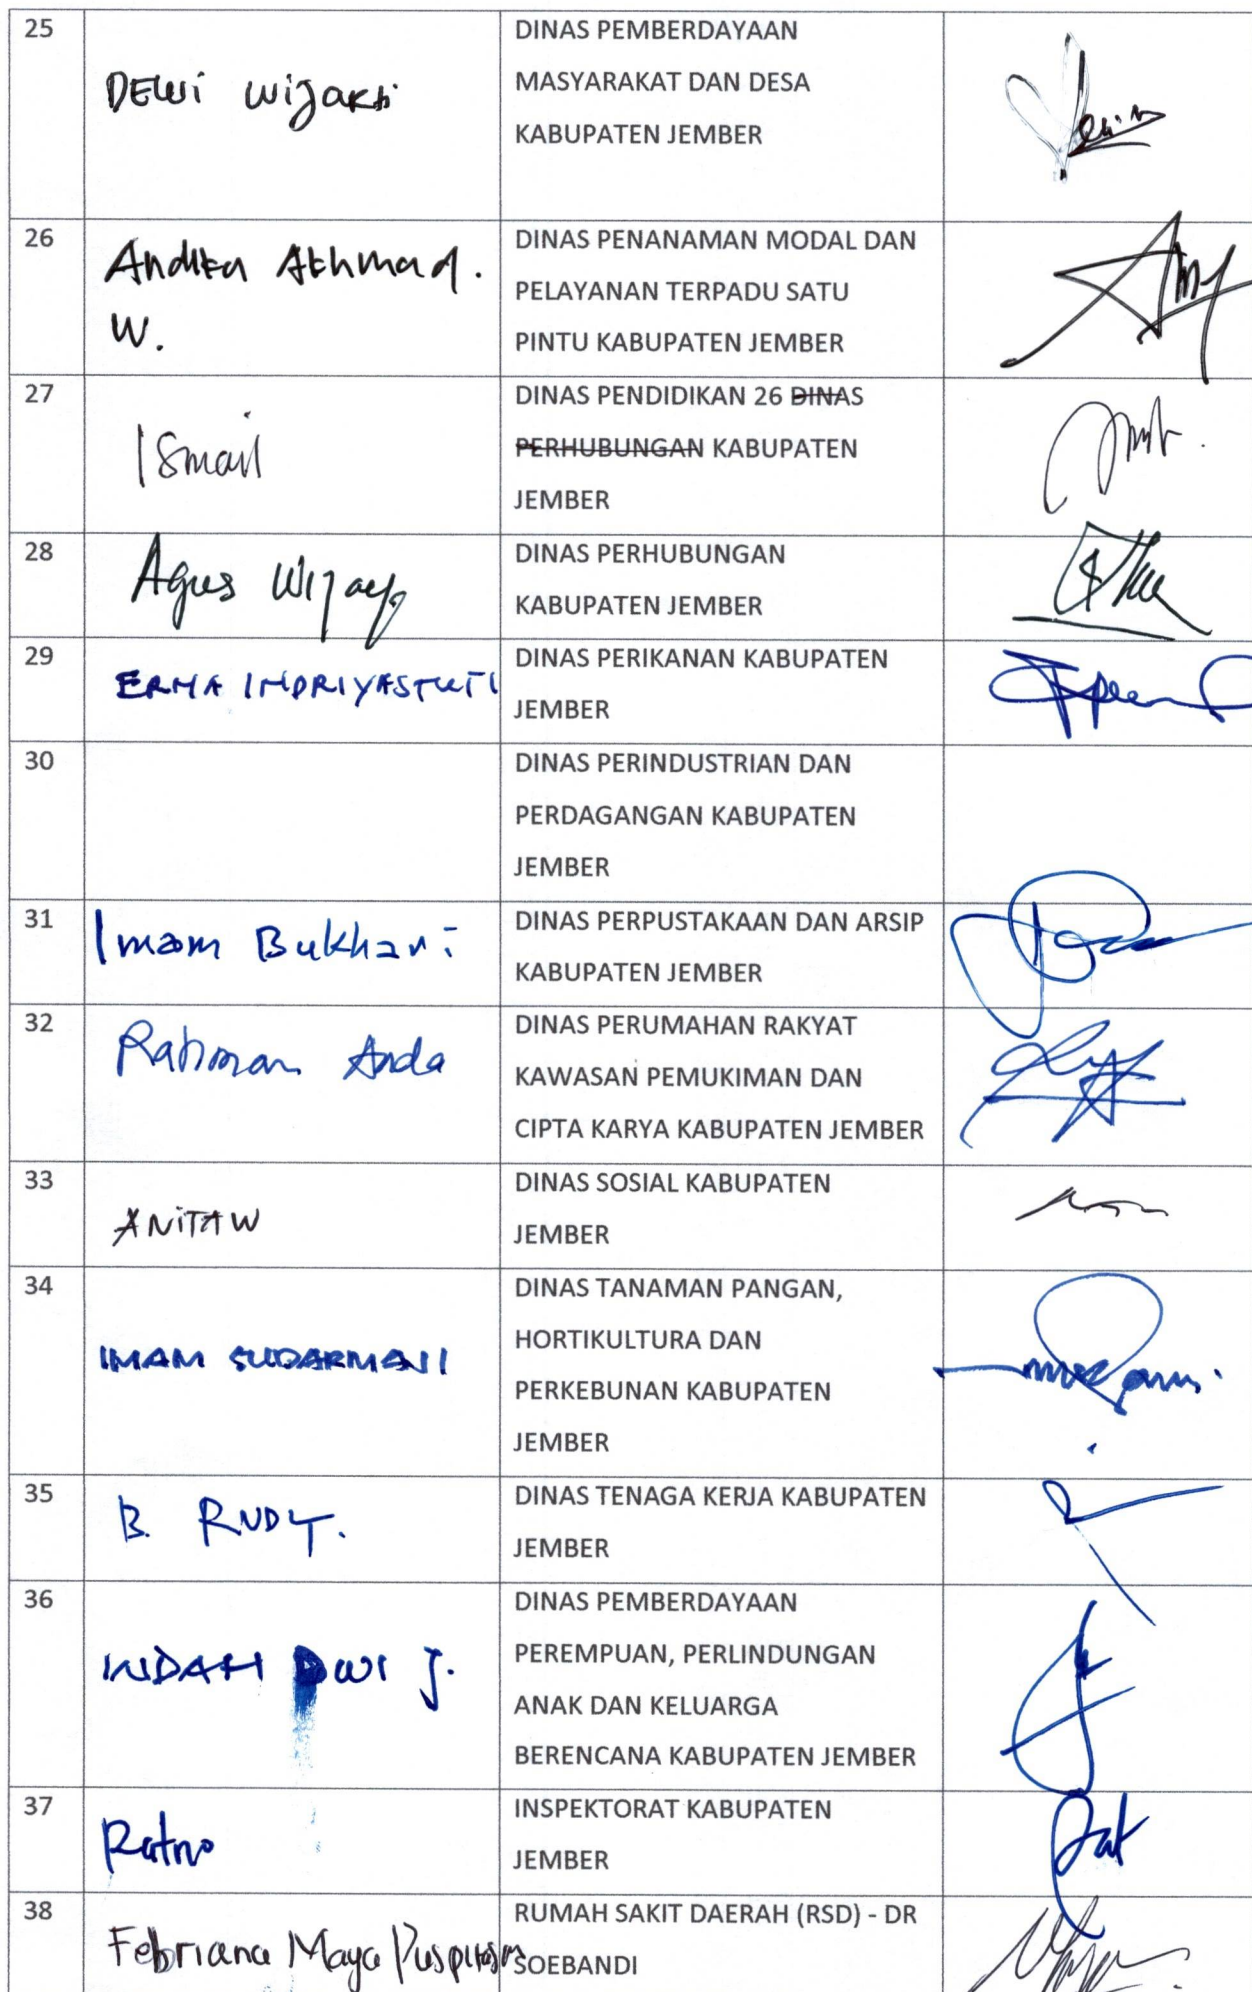 25
DEWi wijakti
DINAS PEMBERDAYAAN
MASYARAKAT DAN DESA
KABUPATEN JEMBER
26
Andika Akhmad.
W.
DINAS PENANAMAN MODAL DAN
PELAYANAN TERPADU SATU
PINTU KABUPATEN JEMBER
27
Ismail
DINAS PENDIDIKAN 26 DINAS
PERHUBUNGAN KABUPATEN
JEMBER
28
Agus Wijaya
DINAS PERHUBUNGAN
KABUPATEN JEMBER
29
ERMA INDRIYASTUTI
DINAS PERIKANAN KABUPATEN
JEMBER
30
DINAS PERINDUSTRIAN DAN
PERDAGANGAN KABUPATEN
JEMBER
31
Imam Bukhari
DINAS PERPUSTAKAAN DAN ARSIP
KABUPATEN JEMBER
32
Rahman Anda
DINAS PERUMAHAN RAKYAT
KAWASAN PEMUKIMAN DAN
CIPTA KARYA KABUPATEN JEMBER
33
ANITA W
DINAS SOSIAL KABUPATEN
JEMBER
34
IMAM SUDARMAJI
DINAS TANAMAN PANGAN,
HORTIKULTURA DAN
PERKEBUNAN KABUPATEN
JEMBER
35
B. RUDY.
DINAS TENAGA KERJA KABUPATEN
JEMBER
36
INDAH DWI J.
DINAS PEMBERDAYAAN
PEREMPUAN, PERLINDUNGAN
ANAK DAN KELUARGA
BERENCANA KABUPATEN JEMBER
37
Ratno
INSPEKTORAT KABUPATEN
JEMBER
38
Febriana Maya Puspitasari
RUMAH SAKIT DAERAH (RSD) - DR
SOEBANDI